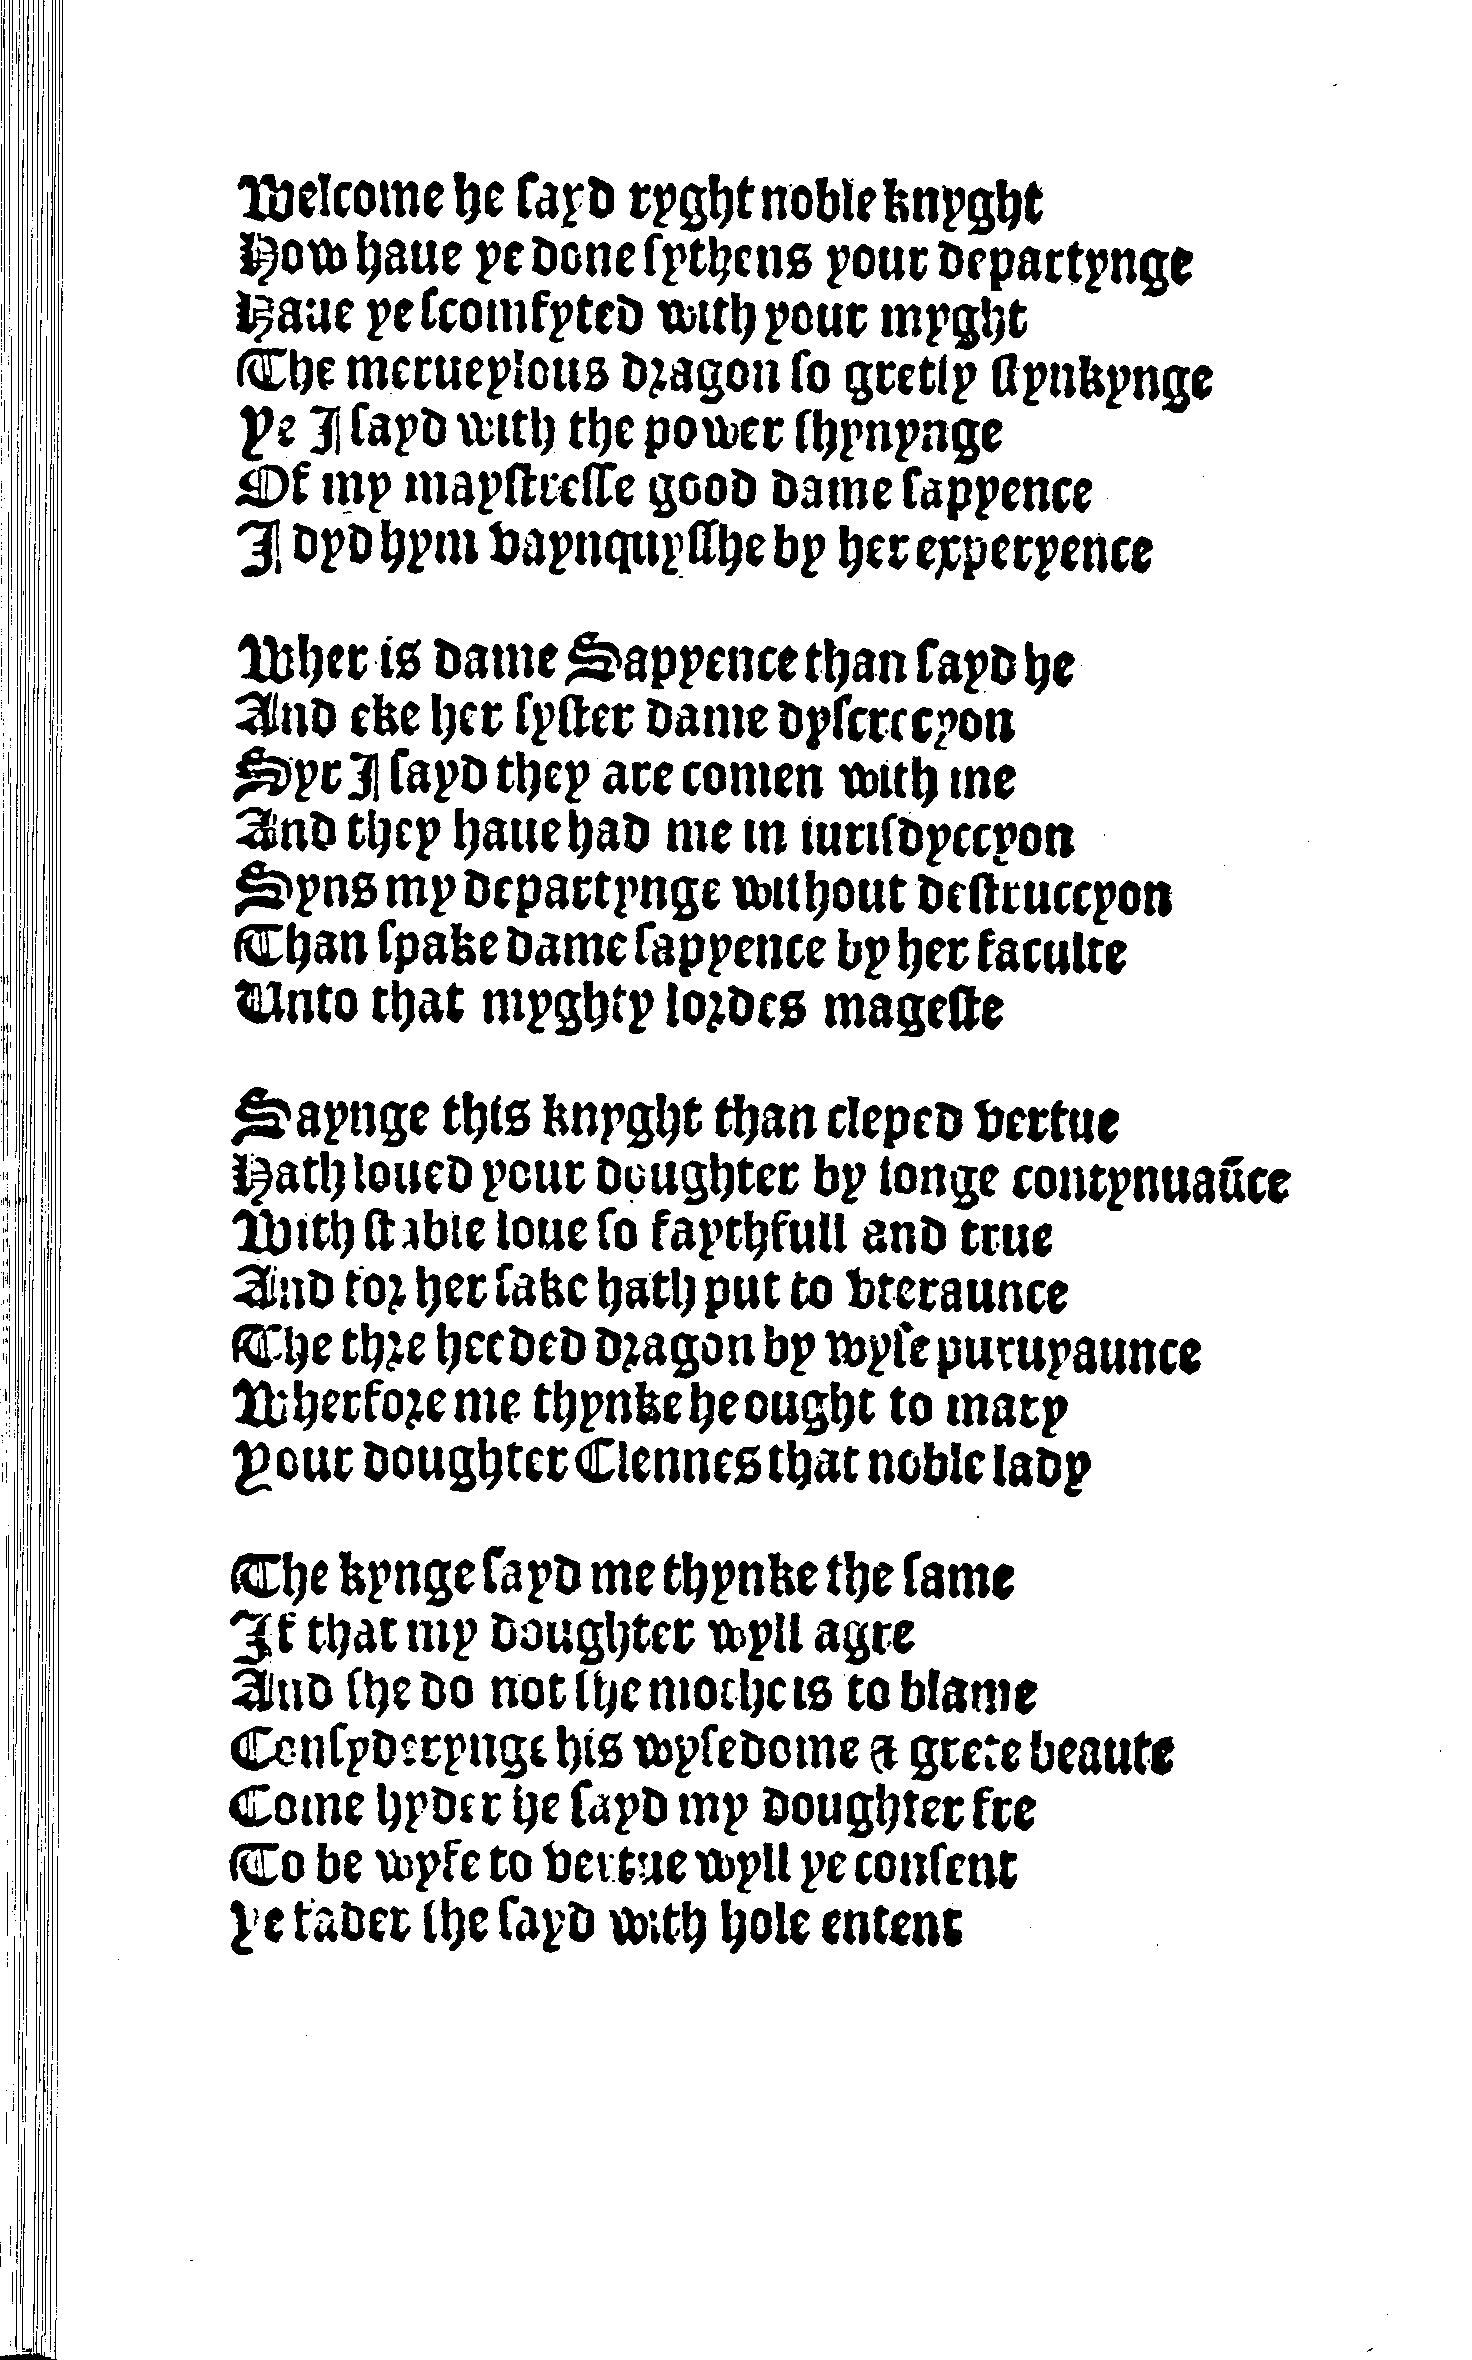 Welcome he ſayd ryght noble knyght
How haue ye done ſythens your departynge
Haue ye ſcomfyted with your myght
The merueylous dꝛagon ſo gretly ſtynkynge
Ye I ſayd with the power ſhynynge
Of my mayſtreſſe good dame ſapyence
I dyd hym vaynquyſſhe by her experyence

Wher is dame Sapyence than ſayd he
And eke her ſyſter dame dyſcrecyon
Syr I ſayd they are comen with me
And they haue had me in iuriſdyccyon
Syns my departynge without deſtruccyon
Than ſpake dame ſapyence by her faculte
Unto that myghty loꝛdes mageſte

Saynge this knyght than cleped vertue
Hath loued your doughter by longe contynuaūce
With ſtable loue ſo faythfull and true
And foꝛ her ſake hath put to vteraunce
The thꝛe heeded dꝛagon by wyſe puruyaunce
Wherfoꝛe me thynke he ought to mary
Your doughter Clennes that noble lady

The kynge ſayd me thynke the ſame
If that my doughter wyll agre
And ſhe do not ſhe moche is to blame
Conſyderynge his wyſedome & grete beaute
Come hyder he ſayd my doughter fre
To be wyfe to vertue wyll ye conſent
Ye fader ſhe ſayd with hole entent